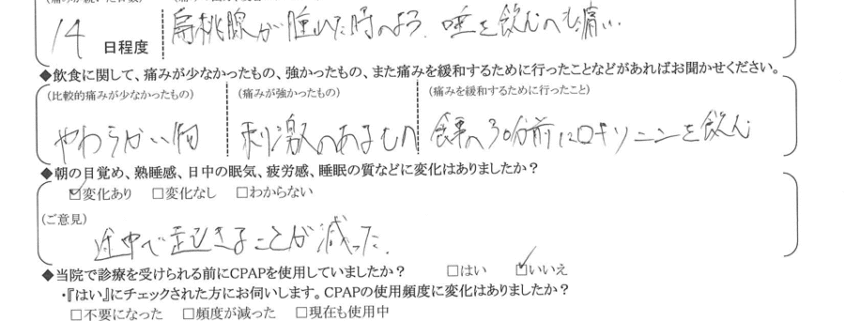 14 日程度 扁桃腺が腫れた時のよう。唾を飲むのも痛い。
◆飲食に関して、痛みが少なかったもの、強かったもの、また痛みを緩和するために行ったことなどがあればお聞かせください。
(比較的痛みが少なかったもの) (痛みが強かったもの) (痛みを緩和するために行ったこと)
やわらかい物 刺激のあるもの 食事の30分前にロキソニンを飲む
◆朝の目覚め、熟睡感、日中の眠気、疲労感、睡眠の質などに変化はありましたか?
☑変化あり □変化なし □わからない
(ご意見)
途中で起きることが減った。
◆当院で診療を受けられる前にCPAPを使用していましたか? □はい ☑いいえ
・『はい』にチェックされた方にお伺いします。CPAPの使用頻度に変化はありましたか?
□不要になった □頻度が減った □現在も使用中